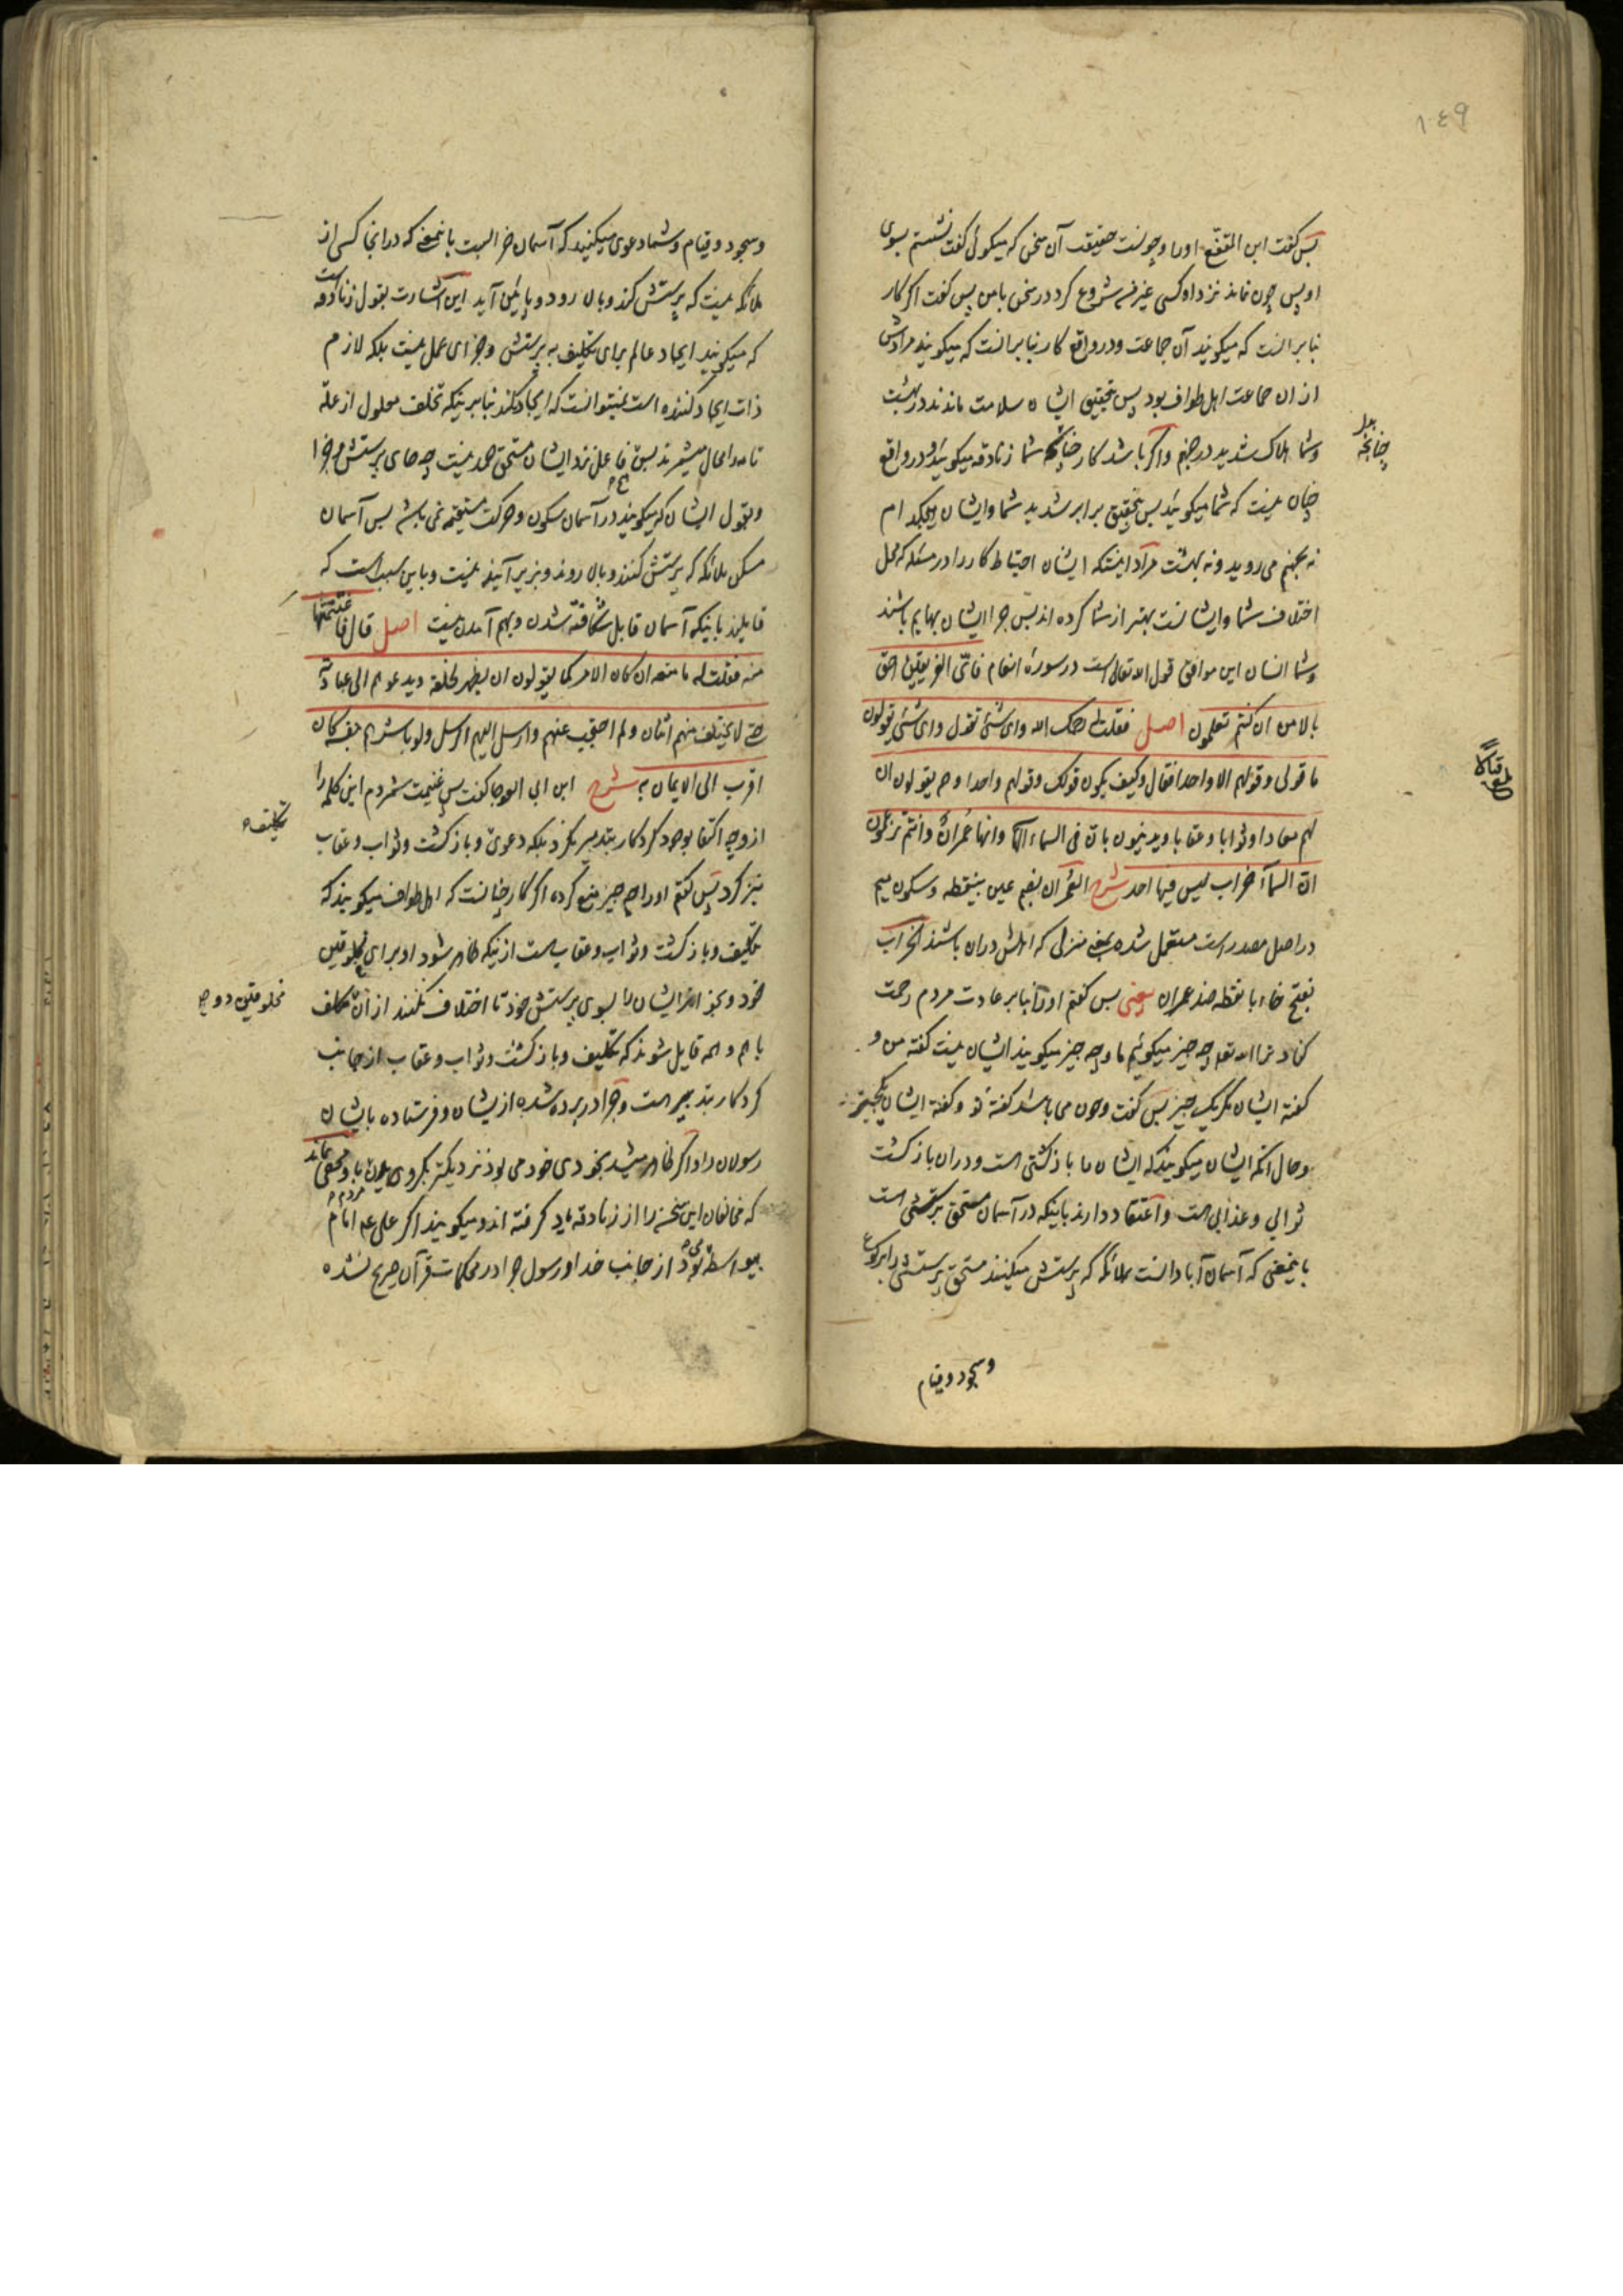 ۱۴۹
پس گفت ابن المقفع اورا وچونست حقیقت آن سخن که میگوئی گفت نشستم بسوی
او پس چون نماند نزد او کسی غیر من شروع کرد در سخن با من پس گفت اگر کار
بنابر آنست که میگویند آن جماعت و در واقع کار بنابر آنست که میگویند مرادش
از ان جماعت اهل طواف بود پس بتحقیق ایشان سلامت ماندند در بهشت
وشما هلاک شدید در جهنم واگر باشد کار چنانکه شما زنادقه میگوئید و در واقع
چنانچه
چنان نیست که شما میگوئید پس بتحقیق برابر شدید شما وایشان هیچکدام
نه بجهنم می روید ونه ببهشت مراد اینستکه ایشان احتیاط کار را در مسئله که محل
اختلاف شما وایشانست بهتر از شما کرده اند پس چرا ایشان بهایم باشند
وشما انسان این موافق قول الله تعالی است در سورهٔ انعام فای الفریقین احق
بالامن ان کنتم تعلمون اصل فقلت له یرحمک الله وای شئ نقول وای شئ یقولون
ما قولی وقولهم الا واحدا فقال وکیف یکون قولک وقولهم واحدا وهم یقولون ان
لهم معادا وثوابا وعقابا ویدینون بان فی السماء الٓها وانها عمران وانتم تزعمون
ان السماء خراب لیس فیها احد شرح العمران بضم عین بینقطه وسکون میم
در اصل مصدر است مستعمل شده بمعنی منزلی که اهلش دران باشند الخراب
بفتح خاء با نقطه ضد عمران یعنی پس گفتم اورا بنابر عادت مردم رحمت
کناد ترا الله تعالی چه چیز میگوئیم ما وچه چیز میگویند ایشان نیست گفته من و
گفته ایشان مگر یک چیز پس گفت وچون می باشد گفته تو وگفته ایشان یکچیز
وحال آنکه ایشان میگویند که ایشان را بازگشتی است ودران بازگشت
ثوابی وعذابی است واعتقاد دارند باینکه در آسمان مستحق پرستشی است
باینمعنی که آسمان آبادانست بملائکه که پرستش میکنند مستحق پرستش را برکوع
وسجود وقیام
وسجود وقیام وشما دعوی میکنید که آسمان خرابست باینمعنی که در انجا کسی از
ملائکه نیست که پرستش کند وبالا رود وپائین آید این اشارت بقول زنادقه است
که میگویند ایجاد عالم برای تکلیف به پرستش وجزای عمل نیست بلکه لازم
ذات ایجاد کننده است نمیتوانست که ایجاد نکند بنابر اینکه تخلف معلول از علة
تامه را محال میشمرند پس فاعل نزد ایشان مستحق حمد نیست چه جای پرستش وجزا
وبقول ایشان که میگویند در آسمان سکون وحرکت مستقیمه نمی باشد پس آسمان
مسکن ملائکه که پرستش کنند وبالا روند وبزیر آیند نیست وباین سبب است که
قایلند باینکه آسمان قابل شکافته شدن وبهم آمدن نیست اصل قال فاغتنمتها
منه فقلت له ما منعه ان کان الامر کما یقولون ان یظهر لخلقه ویدعوهم الی عبادته
حتی لا یختلف منهم اثنان ولم احتجب عنهم وارسل الیهم الرسل ولو باشرهم بنفسه کان
اقرب الی الایمان به شرح ابن ابی العوجا گفت پس غنیمت شمردم این کلمه را
ازو چه اکتفا بوجود کردکار بتدبیر نکرد بلکه دعوی وبازگشت وثواب وعقاب
تکلیف
نیز کرد پس گفتم اورا چه چیز منع کرده اگر کار چنانست که اهل طواف میگویند که
تکلیف وبازگشت وثواب وعقاب است از نیکه ظاهر شود او برای مخلوقین
خود وبخواند ایشان را بسوی پرستش خود تا اختلاف نکنند از ان مکلف
مخلوقین دوج
باهم وهمه قایل شوند که تکلیف وبازگشت وثواب وعقاب از جانب
کردکار بتدبیر است وچرا در پرده شده از یشان وفرستاده بایشان
رسولان را واگر ظاهر میشد بخودی خود می بود نزدیکتر بگرویدن باو مخفی نماند
که مخالفان این سخن را از زنادقه یاد گرفته اند ومیگویند اگر علی عم امام مردم
بیواسطه می بود از جانب خدا ورسول چرا در محکمات قرآن صریح نشده